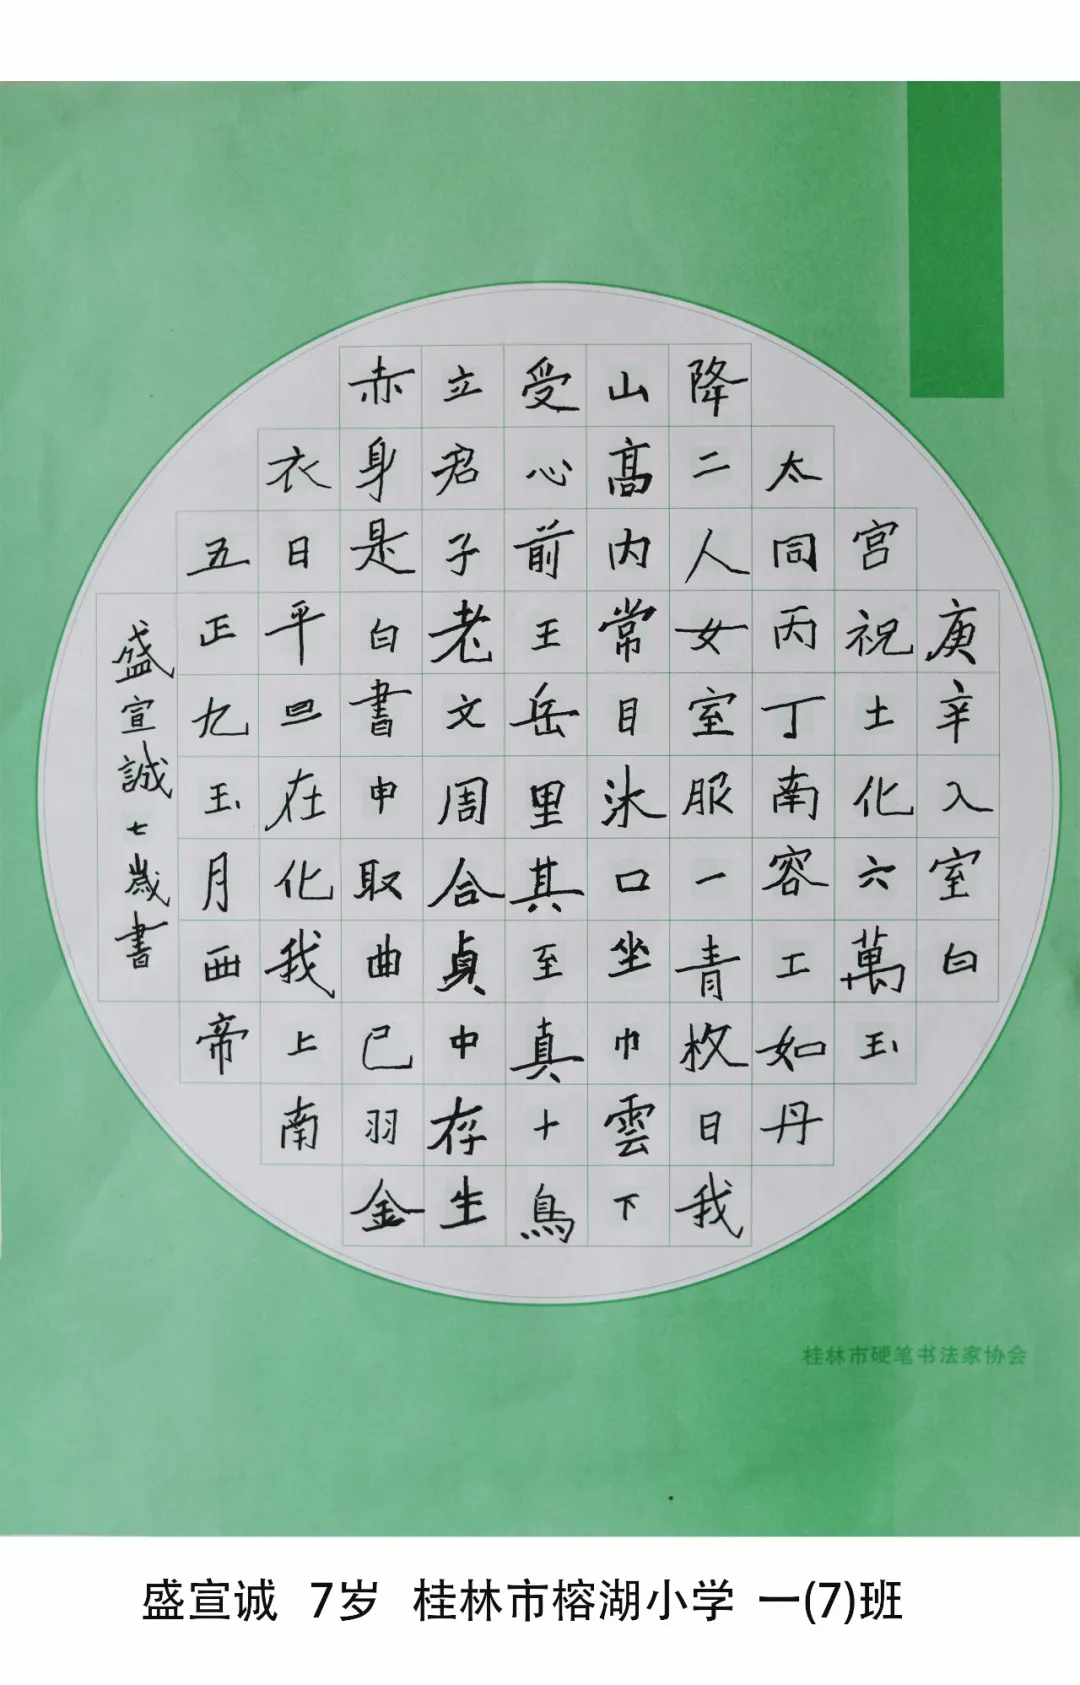 庚辛入室白
宫祝土化六萬玉
太同丙丁南容工如丹
降二人女室服一青枚日我
山高内常目氷口坐巾雲下
受心前王岳里其至真十鳥
立君子老文周合貞中存生
赤身是白書申取曲己羽金
衣日平旦在化我上南
五正九玉月西帝
盛宣誠七歲書
桂林市硬笔书法家协会
盛宣诚 7岁 桂林市榕湖小学 一(7)班